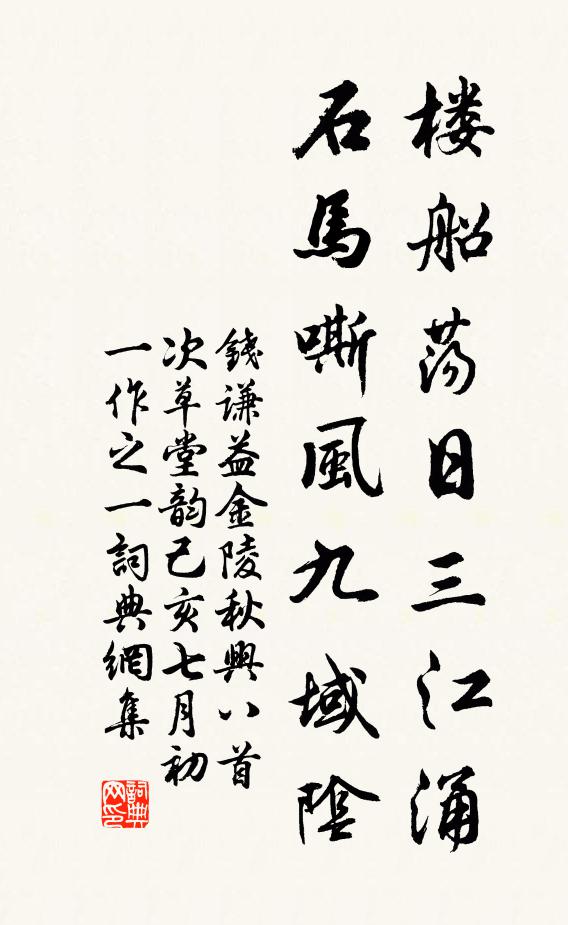 楼船荡日三江涌
石馬嘶風九域陰
錢謙益金陵秋興八首
次草堂韵己亥七月初
一作之一詞典網集
詞典网印